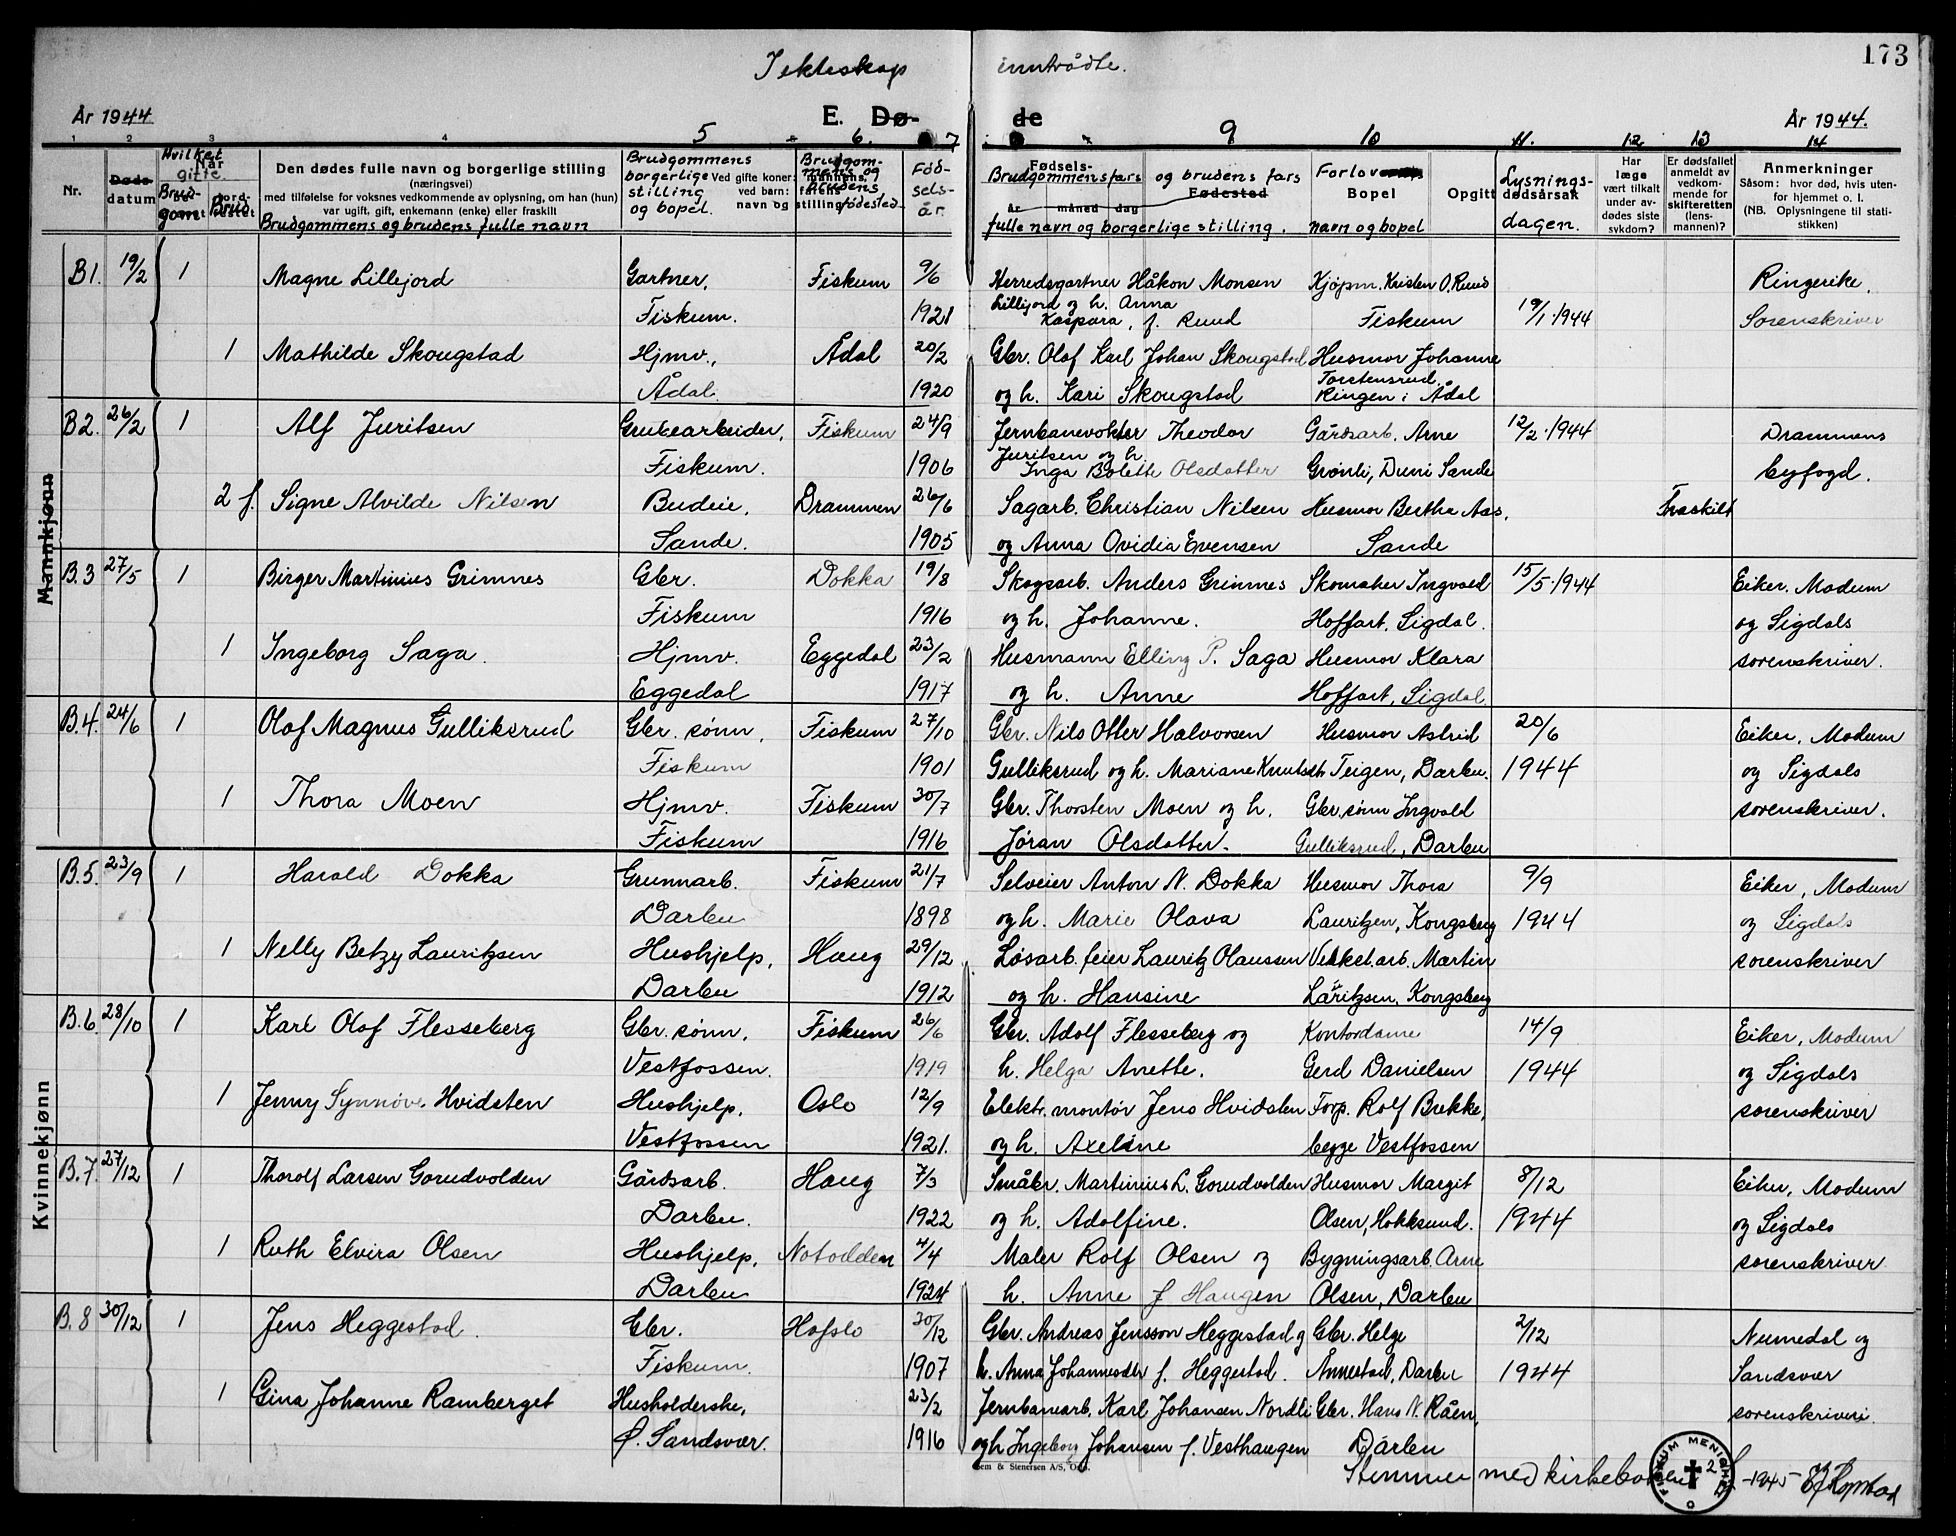 173
I ekteskap inntrådte.
År 1944 E. Dø- de År 1944.
1 2 3 4 5 6. 7 8 9 10 11. 12 13 14
Nr. Døds datum Hvilket gifte. Brudgom Brud
Den dødes fulle navn og borgerlige stilling
(næringsvei)
med tilføielse for voksnes vedkommende av oplysning, om han (hun)
var ugift, gift, enkemann (enke) eller fraskilt
Brudgommens og brudens fulle navn
Brudgommens borgerlige stilling og bopel.
Ved gifte koner: mannens, ved barn: farens navn og stilling
Brudgommens og brudens fødested
Fødselsår.
Fødsels- Fødested
År måned dag
Brudgommens fars og brudens fars fulle navn og borgerlige stilling.
Forlover
Bopel
navn og bopel
Opgitt dødsårsak
Lysningsdagen.
Har læge vært tilkalt under avdødes siste sykdom?
Er dødsfallet anmeldt av vedkommende for skifteretten (lensmannen)?
Anmerkninger
Såsom: hvor død, hvis utenfor hjemmet o. l.
(NB. Oplysningene til statistikken)
B1. 19/2 1 Magne Lillejord Gartner, Fiskum 9/6 Herredsgartner Håkon Monsen Kjøpm. Kristen O. Ruud Ringerike
Fiskum. 1921 Lillejord og h. Anna Kaspara, f. Ruud Fiskum 19/1 1944 Sorenskriver
1 Mathilde Skougstad Hjmv., Ådal 20/2 Gbr. Olaf Karl Johan Skougstad Husmor Johanne
Ådal. 1920 og h. Kari Skougstad Torstensrud. Ringen i Ådal
B2. 26/2 1 Alf Juritsen Grubearbeider, Fiskum 24/9 Jernbanevokter Theodor Gårdsarb. Arne 12/2 1944 Drammens
Fiskum. 1906 Juritsen og h. Inga Bolette Olsdatter Grønli, Duni Sande byfogd.
2 f. Signe Alvilde Nilsen Budeie, Drammen 26/6 Sagarb. Christian Nilsen Husmor Berthe Aas, Fraskilt
Sande. 1905 og Anna Ovidia Evensen Sande
Mannkjønn
B.3 27/5 1 Birger Martinius Grimnes Gbr. Dokka 19/8 Skogsarb. Anders Grimnes Skomaker Ingvald 15/5 1944 Eiker, Modum
Fiskum 1916 og h. Johanne. Hoffart, Sigdal. og Sigdals
1 Ingeborg Saga. Hjmv. Eggedal 23/2 Husmann Elling P. Saga Husmor Klara sorenskriver.
Eggedal 1917 og h. Anne Hoffart, Sigdal.
B.4. 24/6 1 Olaf Magnus Gulliksrud Gbr. sønn, Fiskum 27/10 Gbr. Nils Otter Halvorsen Husmor Astrid 20/6 Eiker, Modum
Fiskum 1901 Gulliksrud og h. Mariane Knutsdtr Teigen, Darbu. 1944 og Sigdals
1 Thora Moen Hjmv. Fiskum 30/7 Gbr. Thorsten Moen og h. Gbr. sønn Ingvald sorenskriver.
Fiskum 1916 Jøran Olsdatter. Gulliksrud, Darbu
B.5. 23/9 1 Harald Dokka Grunnarb. Fiskum 21/7 Selveier Anton N. Dokka Husmor Thora 9/9 Eiker, Modum
Darbu 1898 og h. Marie Olava Lauritzen, Kongsberg 1944 og Sigdals
1 Nelly Betzy Lauritzsen Hushjelp, Haug 29/12 Løsarb. feier Lauritz Olaussen Verkst.arb. Martin sorenskriver
Darbu 1912 og h. Hansine Lauritzsen, Kongsberg
B.6. 28/10 1 Karl Olaf Flesseberg Gbr. sønn, Fiskum 26/6 Gbr. Adolf Flesseberg og Kontordame 14/9 Eiker, Modum
Vestfossen. 1919 h. Helga Anette. Gerd Danielsen 1944 og Sigdals
1 Jenny Synnøve Hvidsten Hushjelp. Oslo 12/9 Elektr. montør Jens Hvidsten Torp. Rolf Brekke, sorenskriver
Vestfossen 1921. og h. Axeline begge Vestfossen
Kvinnekjønn
B.7 27/12 1 Thorolf Larsen Gorudvolden Gårdsarb. Haug 7/3 Småbr. Martinius L. Gorudvolden Husmor Margit 8/12 Eiker, Modum
Darbu. 1922 og h. Adolfine. Olsen, Hokksund. 1944 og Sigdals
1 Ruth Elvira Olsen Hushjelp, Notodden 4/4 Maler Rolf Olsen og Bygningsarb. Arne sorenskriver
Darbu 1924 h. Anne f Haugen Olsen, Darbu
B.8 30/12 1 Jens Heggestad. Gbr. Hafslo 30/12 Gbr. Andreas Jensson Heggestad og Gbr. Helge 2/12 Numedal og
Fiskum 1907 h. Anna Johannesdtr f. Heggestad. Ånnestad, Darbu 1944 Sandsvær
1 Gina Johanne Ramberget Husholderske, 23/2 Jernbanearb. Karl Johansen Nordli Gbr. Hans N. Råen, sorenskriveri.
Ø. Sandsvær. 1916 og h Ingeborg Johansen f. Vesthaugen Darbu
Sem & Stenersen A/S, Oslo.
Stemmer med kirkeboken
FISKUM MENIGHET
2 - 1945